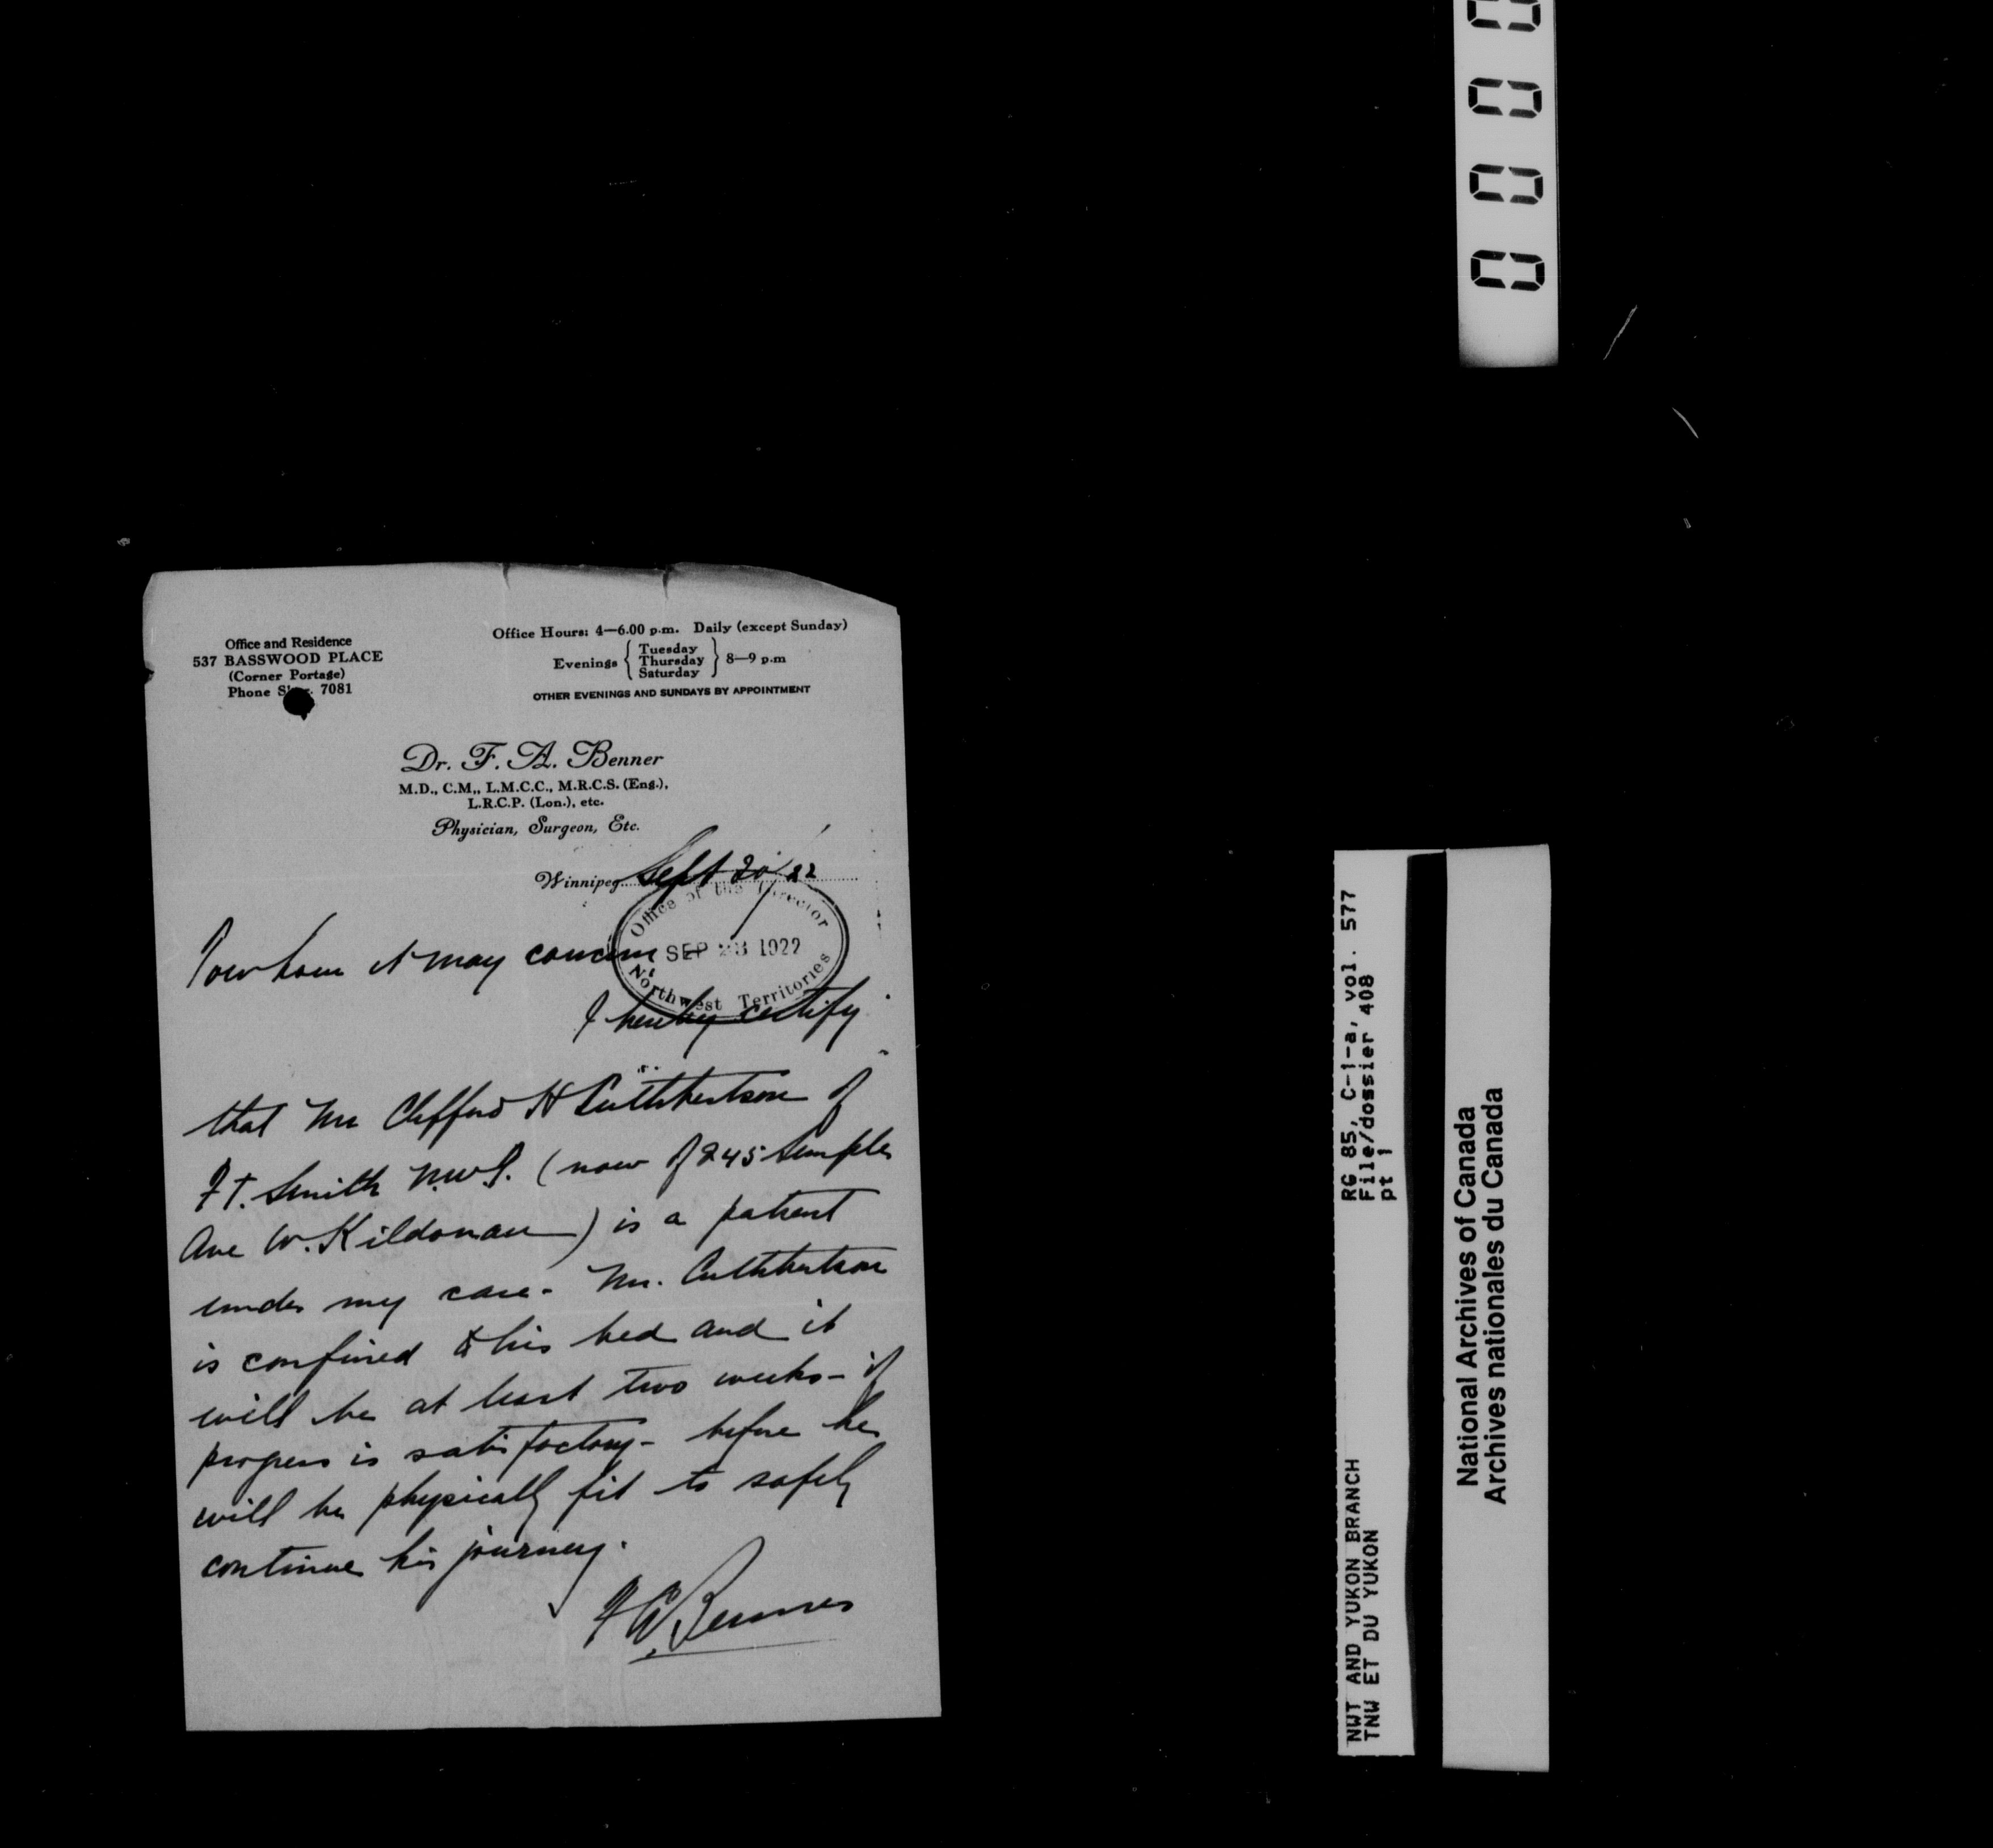 Office and Residence
537 BASSWOOD PLACE
(Corner Portage)
Phone 7081
Office Hours: 4—6.00 p.m. Daily (except Sunday)
Evenings { Tuesday Thursday Saturday } 8—9 p.m
OTHER EVENINGS AND SUNDAYS BY APPOINTMENT
Dr. F. A. Benner
M.D., C.M., L.M.C.C., M.R.C.S. (Eng.),
L.R.C.P. (Lon.), etc.
Physician, Surgeon, Etc.
Winnipeg Sept 20/22
Office of the Director
SEP 23 1922
Northwest Territories
To whom it may concern
I hereby certify
that Mr Clifford H Cuthbertson of
Ft. Smith N.W.T. (now of 245 Semple
Ave W. Kildonan) is a patient
under my care - Mr. Cuthbertson
is confined to his bed and it
will be at least two weeks - if
progress is satisfactory - before he
will be physically fit to safely
continue his journey.
F A Benner
0 0 0 0
RG 85, C-1-a, vol. 577
File/dossier 408
pt 1
NWT AND YUKON BRANCH
TNW ET DU YUKON
National Archives of Canada
Archives nationales du Canada